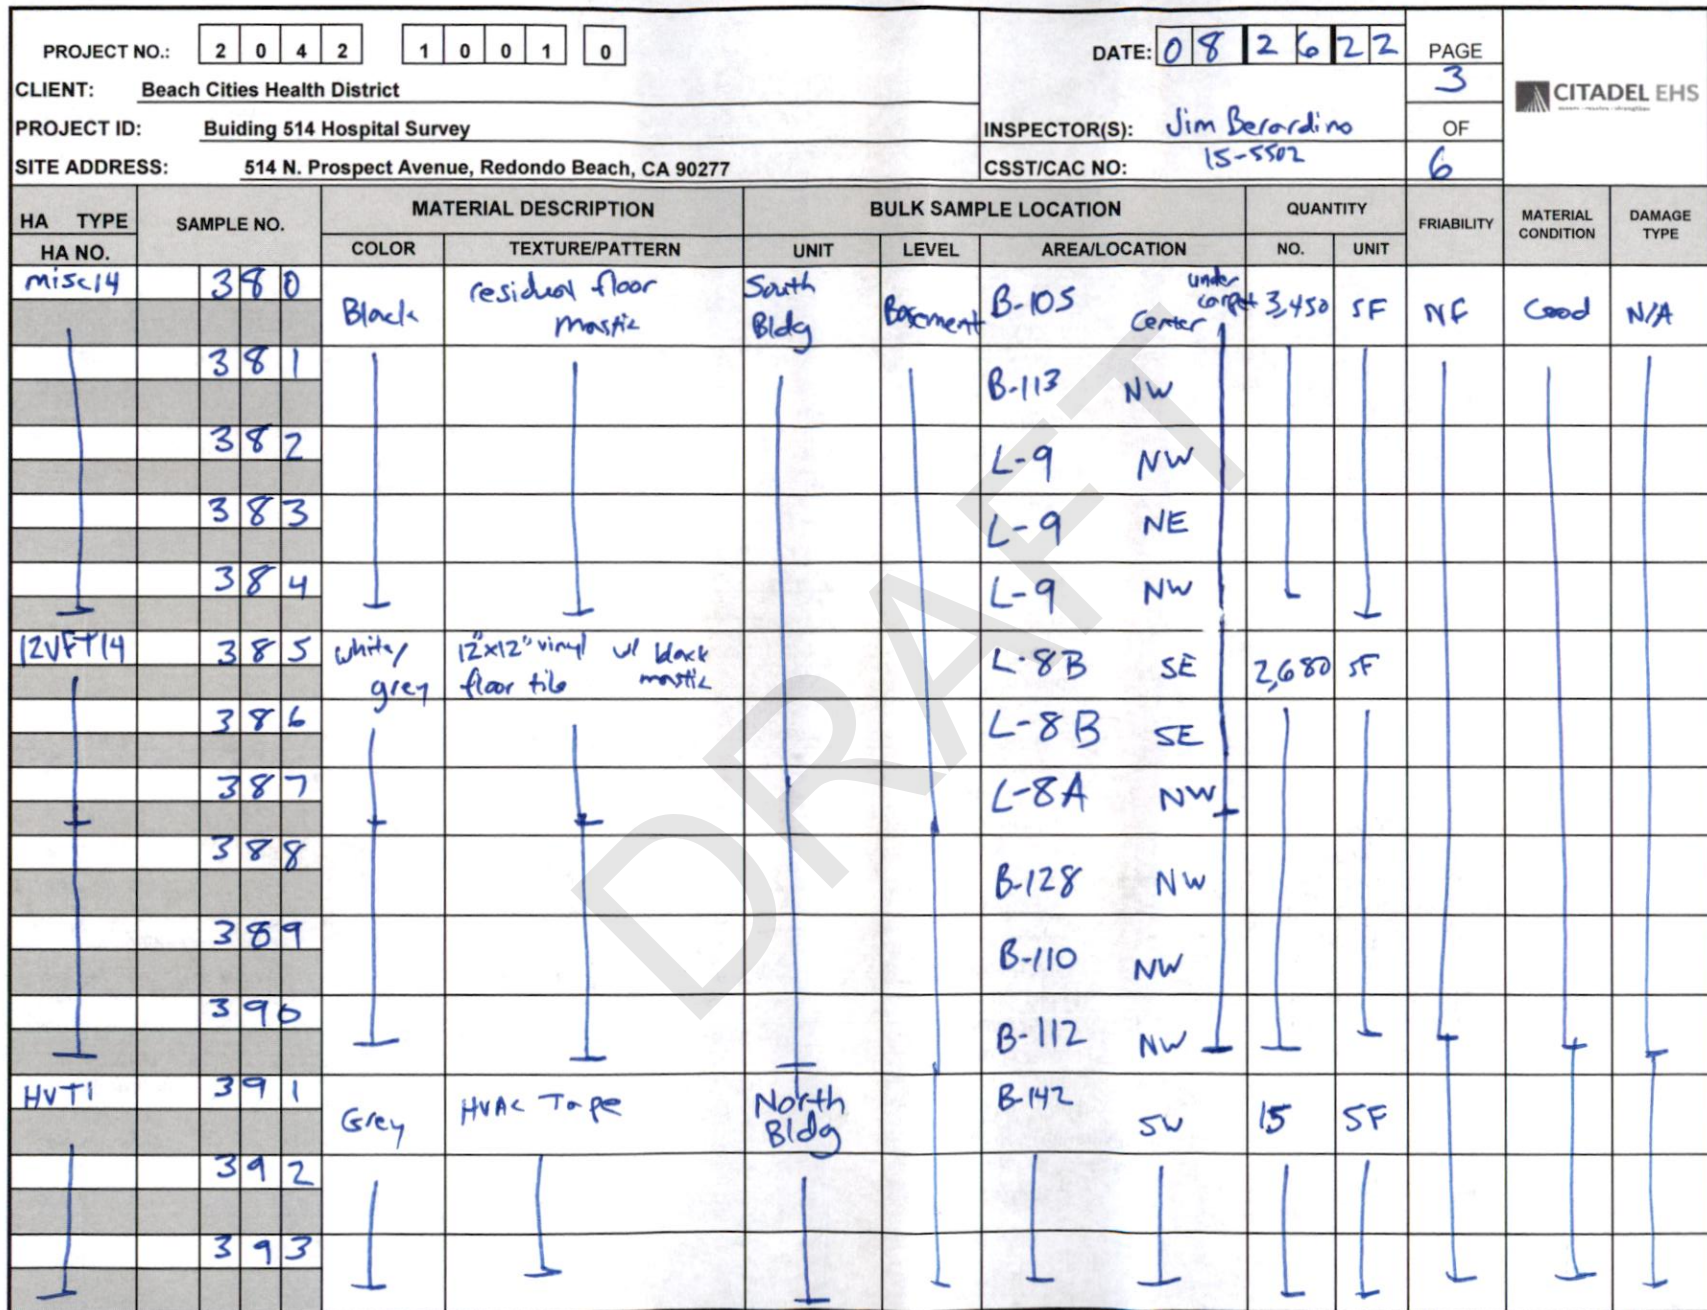 PROJECT NO.: 2 0 4 2 1 0 0 1 0 DATE: 0 8 2 6 2 2 PAGE
3
CLIENT: Beach Cities Health District
CITADEL EHS
PROJECT ID: Buiding 514 Hospital Survey INSPECTOR(S): Jim Berardino OF
SITE ADDRESS: 514 N. Prospect Avenue, Redondo Beach, CA 90277 CSST/CAC NO: 15-5502 6
HA TYPE SAMPLE NO. MATERIAL DESCRIPTION BULK SAMPLE LOCATION QUANTITY FRIABILITY MATERIAL CONDITION DAMAGE TYPE
HA NO. COLOR TEXTURE/PATTERN UNIT LEVEL AREA/LOCATION NO. UNIT
misc14 380 Black residual floor mastic South Bldg Basement B-105 Center under carpet 3,450 SF NF Good N/A
381 B-113 NW
382 L-9 NW
383 L-9 NE
384 L-9 NW
12VFT14 385 white/grey 12"x12" vinyl floor tile w/ black mastic L-8B SE 2,680 SF
386 L-8B SE
387 L-8A NW
388 B-128 NW
389 B-110 NW
390 B-112 NW
HVT1 391 Grey HVAC Tape North Bldg B-142 SW 15 SF
392
393
DRAFT